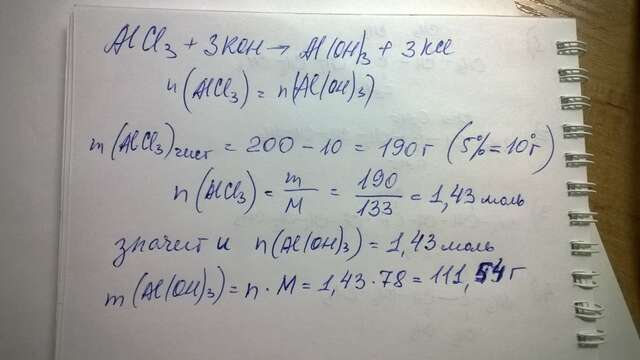 AlCl₃ + 3KOH → Al(OH)₃ + 3KCl
n(AlCl₃) = n(Al(OH)₃)
m(AlCl₃)чист = 200 - 10 = 190г (5% = 10г)
n(AlCl₃) = m/M = 190/133 = 1,43 моль
значит и n(Al(OH)₃) = 1,43 моль
m(Al(OH)₃) = n · M = 1,43 · 78 = 111,54 г